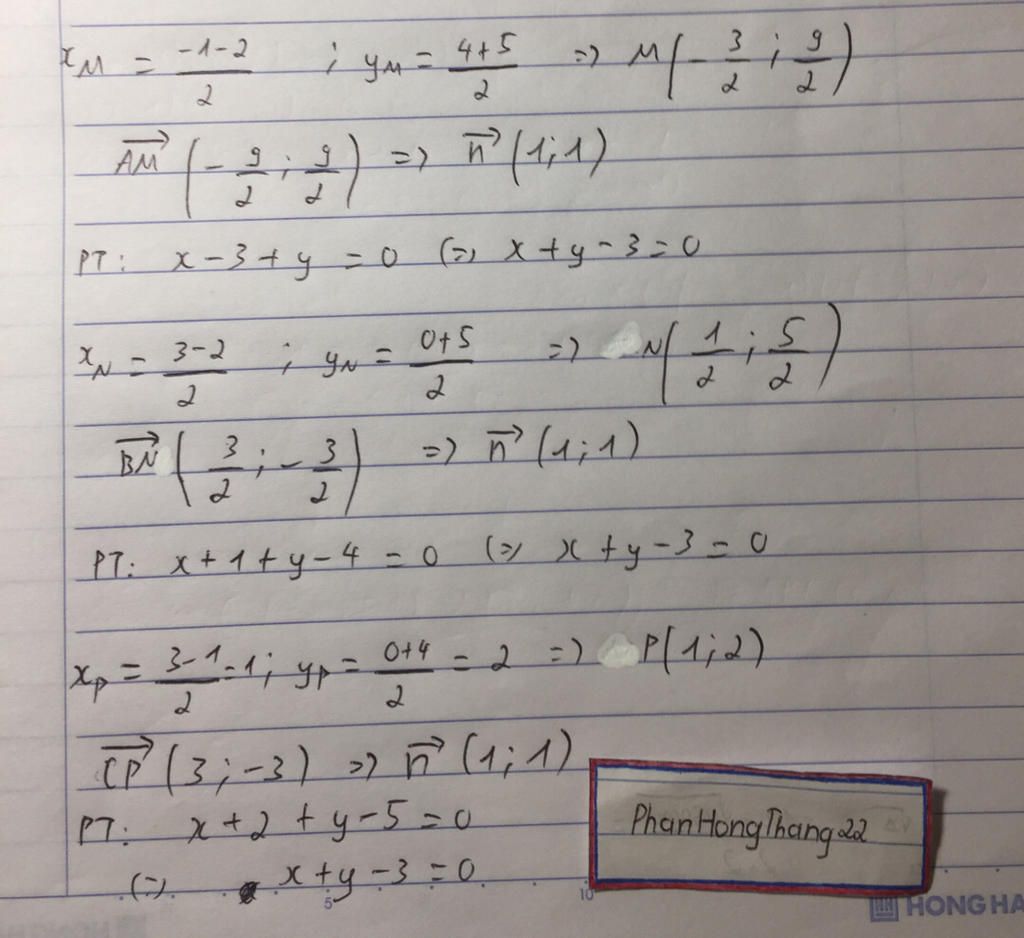 x_M = \frac{-1-2}{2} ; y_M = \frac{4+5}{2} => M(-\frac{3}{2} ; \frac{9}{2})
\overrightarrow{AM} (-\frac{9}{2} ; \frac{9}{2}) => \overrightarrow{n} (1; 1)
PT: x - 3 + y = 0 (=> x + y - 3 = 0
x_N = \frac{3-2}{2} ; y_N = \frac{0+5}{2} => N(\frac{1}{2} ; \frac{5}{2})
\overrightarrow{BN} (\frac{3}{2} ; -\frac{3}{2}) => \overrightarrow{n} (1; 1)
PT: x + 1 + y - 4 = 0 (=> x + y - 3 = 0
x_P = \frac{3-1}{2} = 1; y_P = \frac{0+4}{2} = 2 => P(1; 2)
\overrightarrow{CP} (3; -3) => \overrightarrow{n} (1; 1)
PT: x + 2 + y - 5 = 0
(=> x + y - 3 = 0
PhanHongThang22
5 10
HONG HA